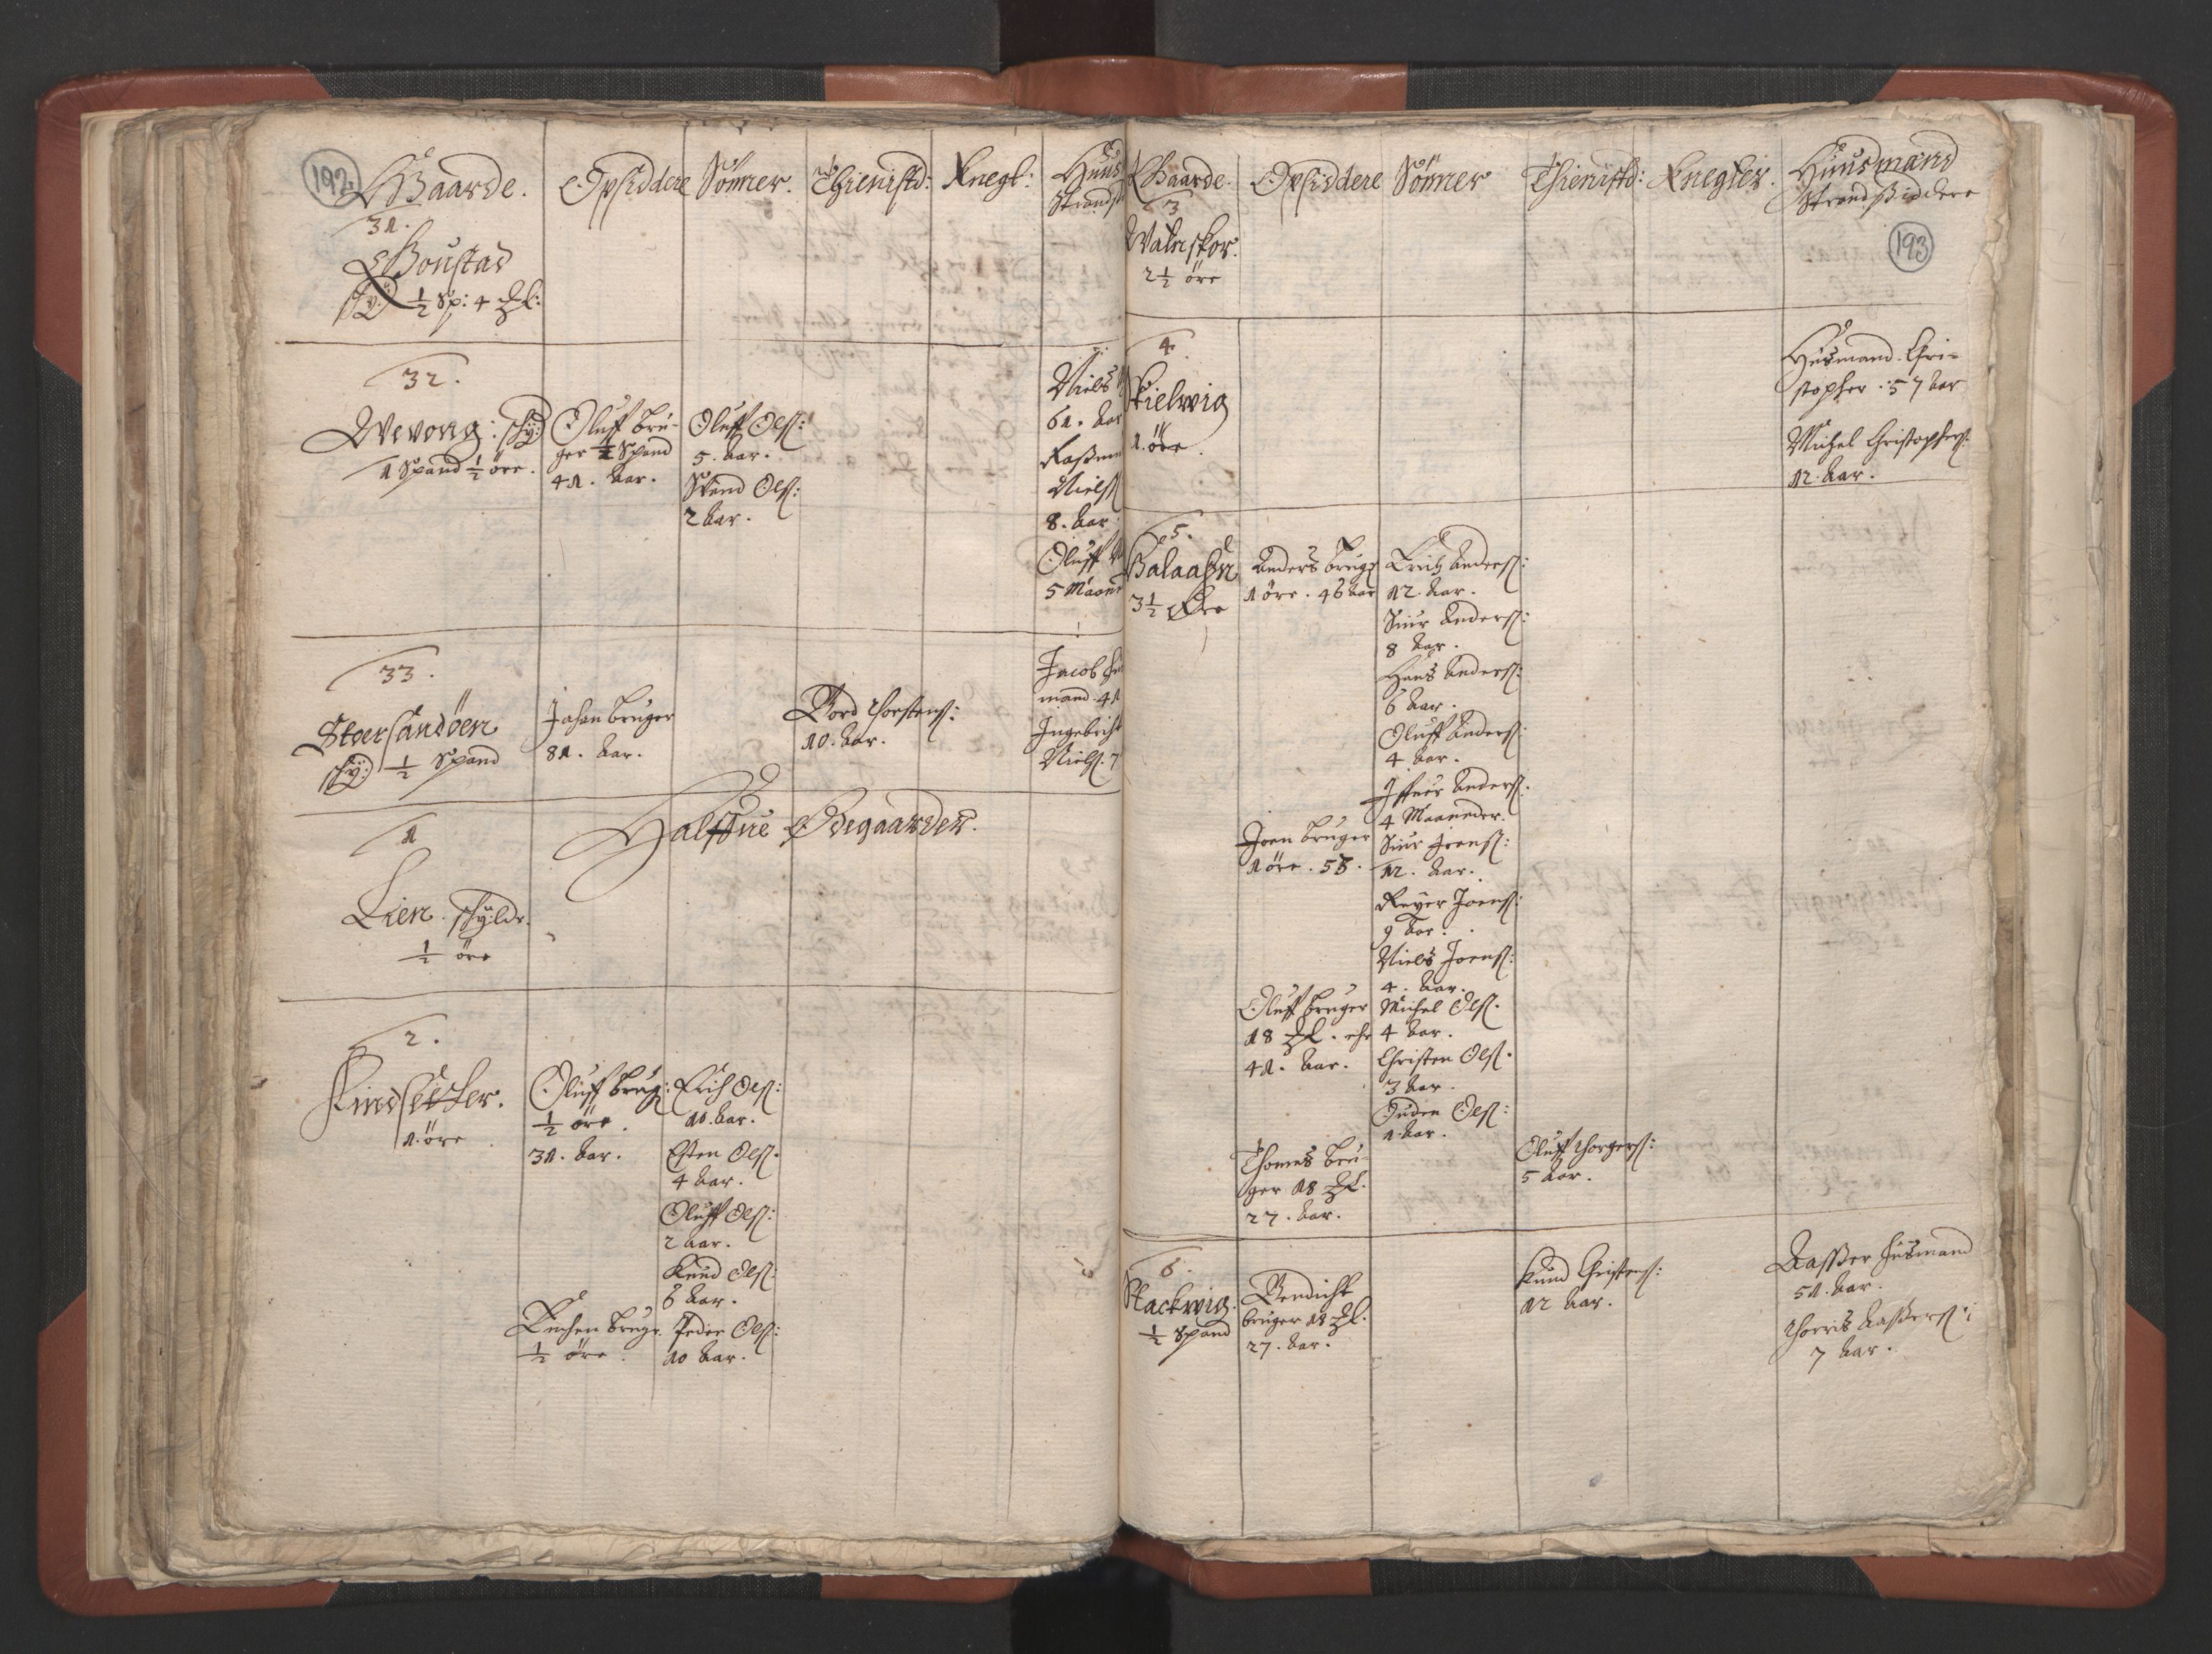 192
Gaarde. Opsiddere Sönner. Thienistd: Knegt: Huus
Strands
31.
Boustad
sky: ½ Sp: 4
32.
Wevong: sky:
1 Spand ½ öre.
Oluff bru-
ger ½ Spand
41. Aar.
Oluff Olß:
5. Aar.
Svend Olß:
2 Aar.
Niels
61. Aar
Raßmu
Nielß
8. Aar
Oluff
5 Maane
33.
Steersandöen
sky: ½ Spand
Johan bruger
81. Aar.
Bord Thorstenß:
10. Aar.
Jacob hu
mand. 41
Ingebricht
Nielß. 7
Halffue Ödegaarder.
1
Lien. skylde.
½ öre
2.
Kindsetter.
1. öre
Oluff brug:
½ öre.
31. Aar.
Erich Olß:
10. Aar.
Esten Olß.
4 Aar.
Oluff Olß:
2 Aar.
Knud Olß.
6 Aar.
bruger.
½ öre.
Peder Olß:
10 Aar.
Gaarde. Opsiddere Sönner Thienistd: Knegter. Huusmænd
Strandsiddere
193
3
Walnskor.
2½ öre
4.
Skielwig
1. öre.
Husmand. Chri-
stopher. 57 Aar
Michel Christopherß.
12. Aar.
5.
Balaaßn
3½ Öre
Anders brug:
1 öre. 46 Aar
Erich Anderß:
12. Aar.
Siur Anderß:
8 Aar.
Hans Anderß:
6 Aar.
Oluff Anderß:
4 Aar.
Iffuer Anderß.
4 Maaneder.
Joen bruger
1 öre. 58.
Siur Joenß:
12. Aar.
Reyer Joenß:
9 Aar.
Niels Joenß:
4. Aar.
Oluff bruger
18
41. Aar.
Michel Olß.
4 Aar.
Christen Olß.
3 Aar.
Ouden Olß:
1 Aar.
Thomes bru-
ger 18
27. Aar.
Oluff Thorgerß:
5 Aar.
6.
Stackwig.
½ Spand
Bendicht
bruger 18
27. Aar.
Knud Christenß:
12 Aar.
Aaßer husmand
51. Aar.
Thorris Aaßerß:
7 Aar.